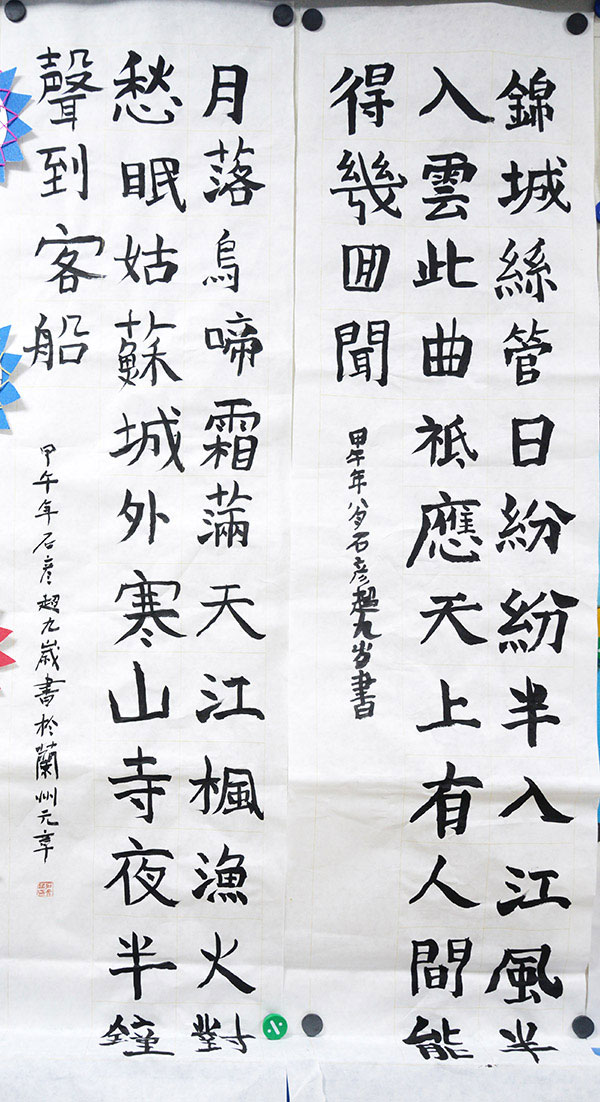 錦城絲管日紛紛半入江風半
入雲此曲祗應天上有人間能
得幾囬聞
甲午年八月石彦超九岁書
月落烏啼霜滿天江楓漁火對
愁眠姑蘇城外寒山寺夜半鐘
聲到客船
甲午年石彦超九歲書於蘭州元章